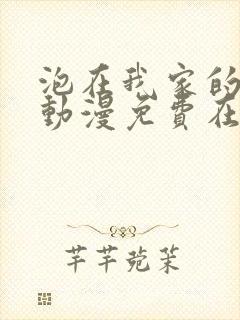 泡在我家的
動漫免費在
芊芊菀茱